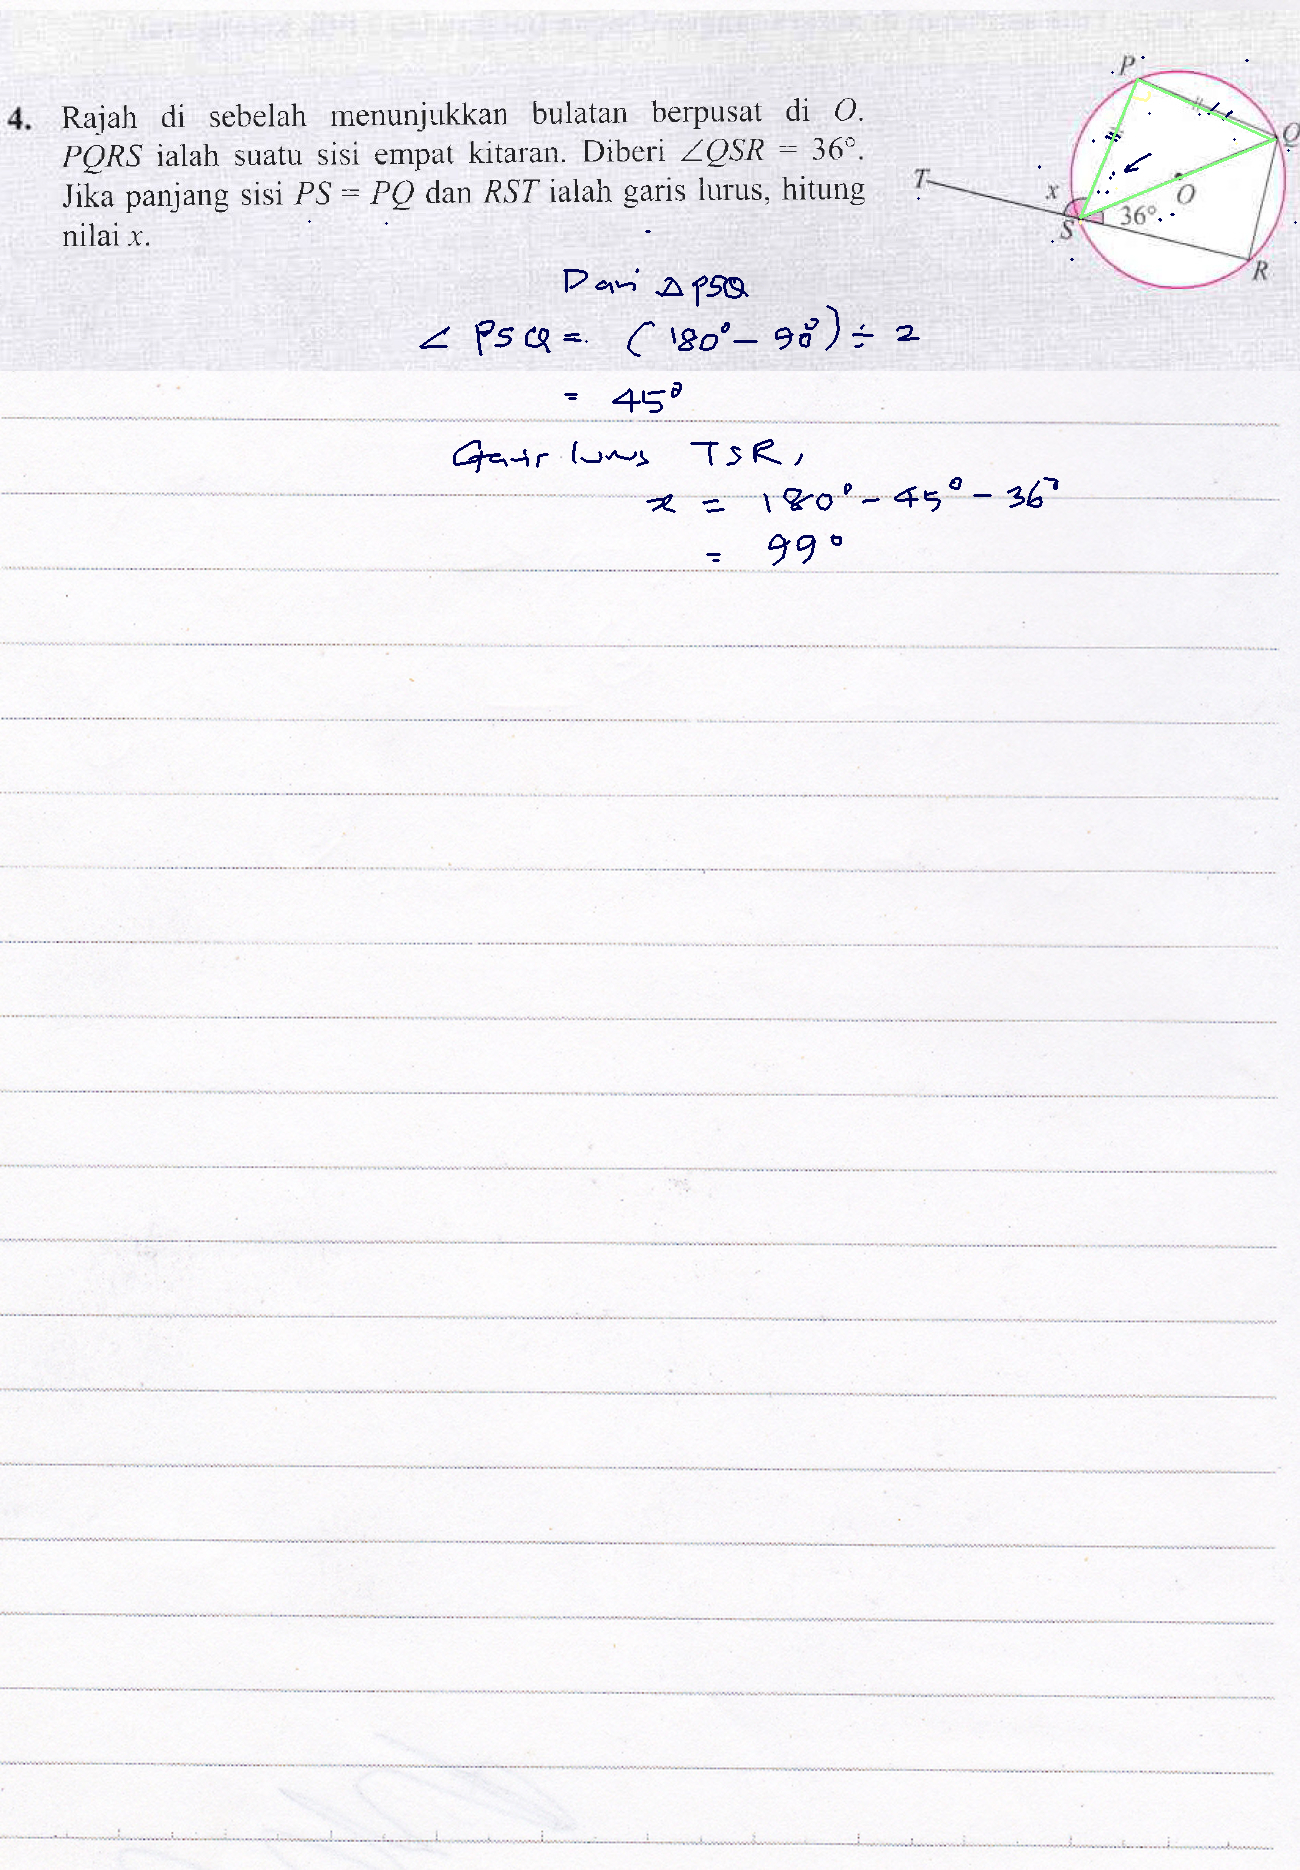 4. Rajah di sebelah menunjukkan bulatan berpusat di O.
PQRS ialah suatu sisi empat kitaran. Diberi ∠QSR = 36°.
Jika panjang sisi PS = PQ dan RST ialah garis lurus, hitung
nilai x.
P
Q
T
x
O
36°
S
R
Dari △PSQ
∠PSQ = (180° − 90°) ÷ 2
= 45°
Garis lurus TSR,
x = 180° − 45° − 36°
= 99°